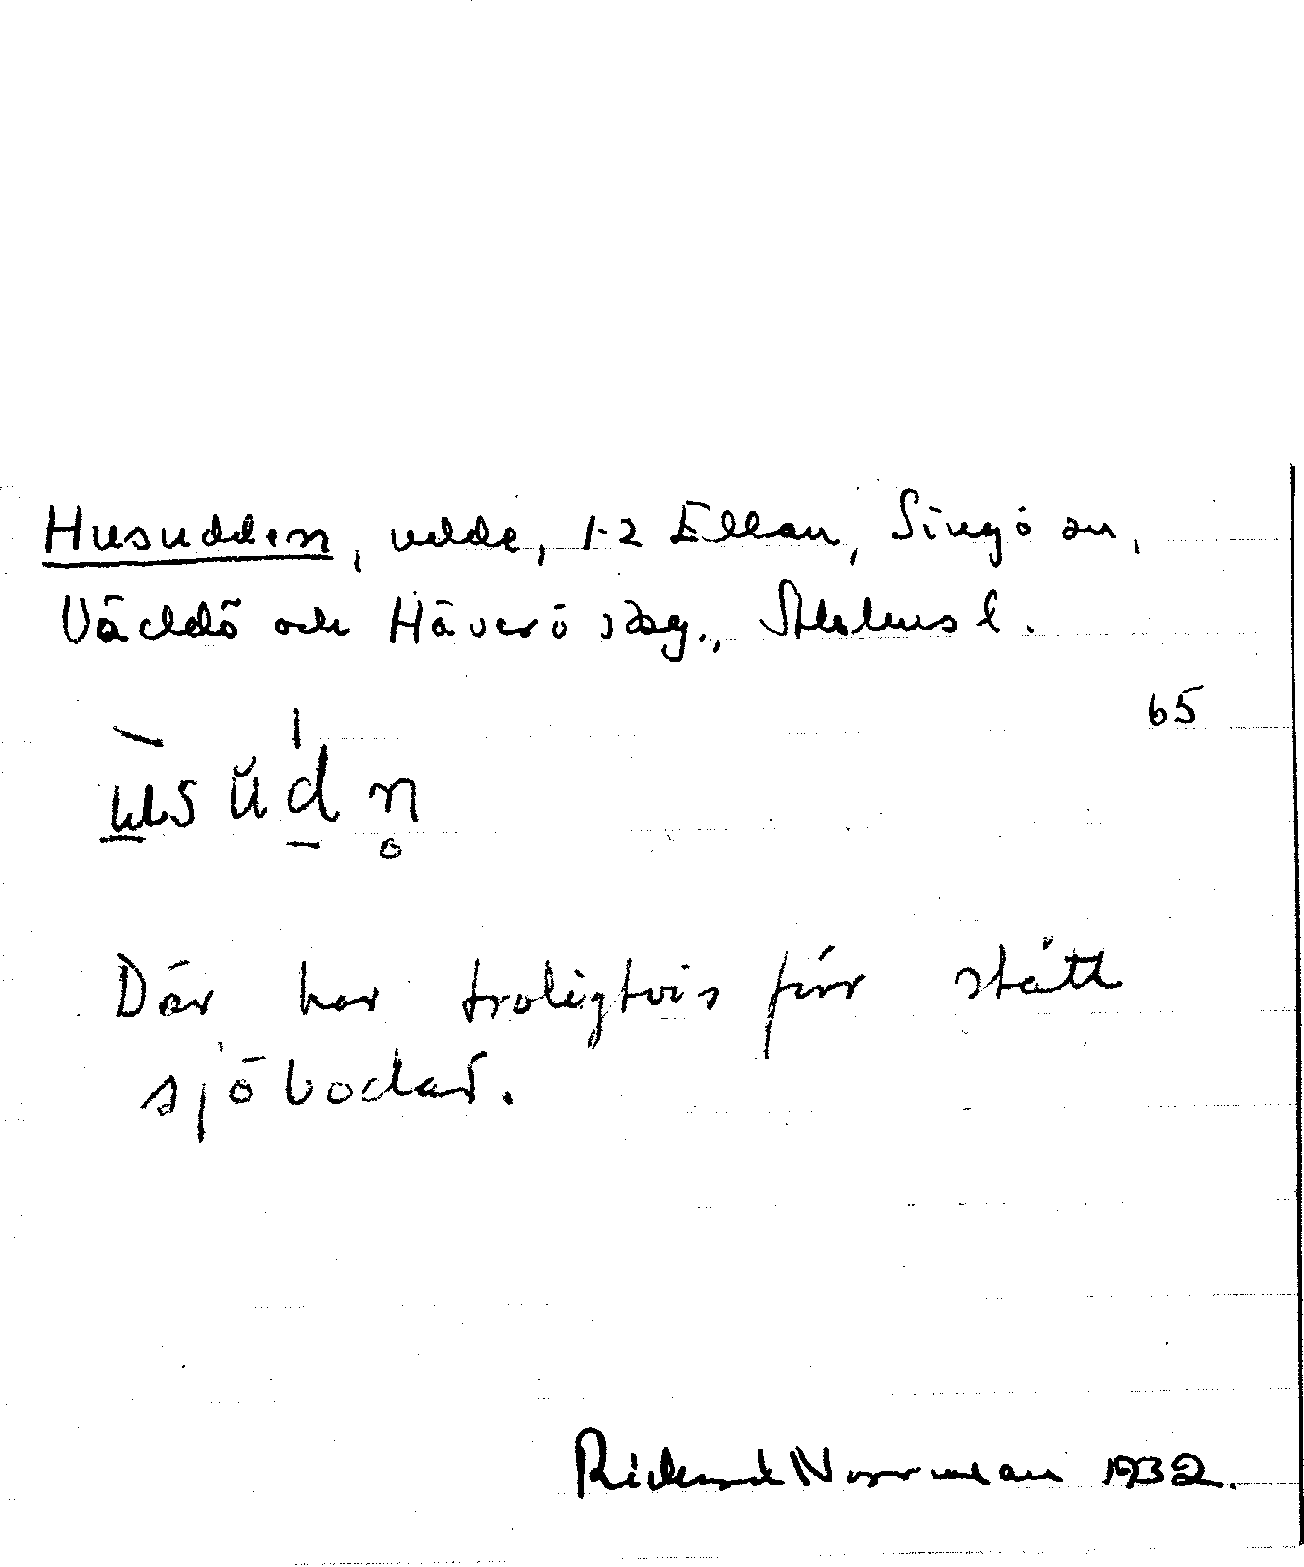 Husudden, udde, 1-2 Ellan, Singö sn,
Väddö och Häverö skg., Sthlms l.
65
usŭdn̥
Där har troligtvis förr stått
sjöbodar.
Rickard Norrman 1932.